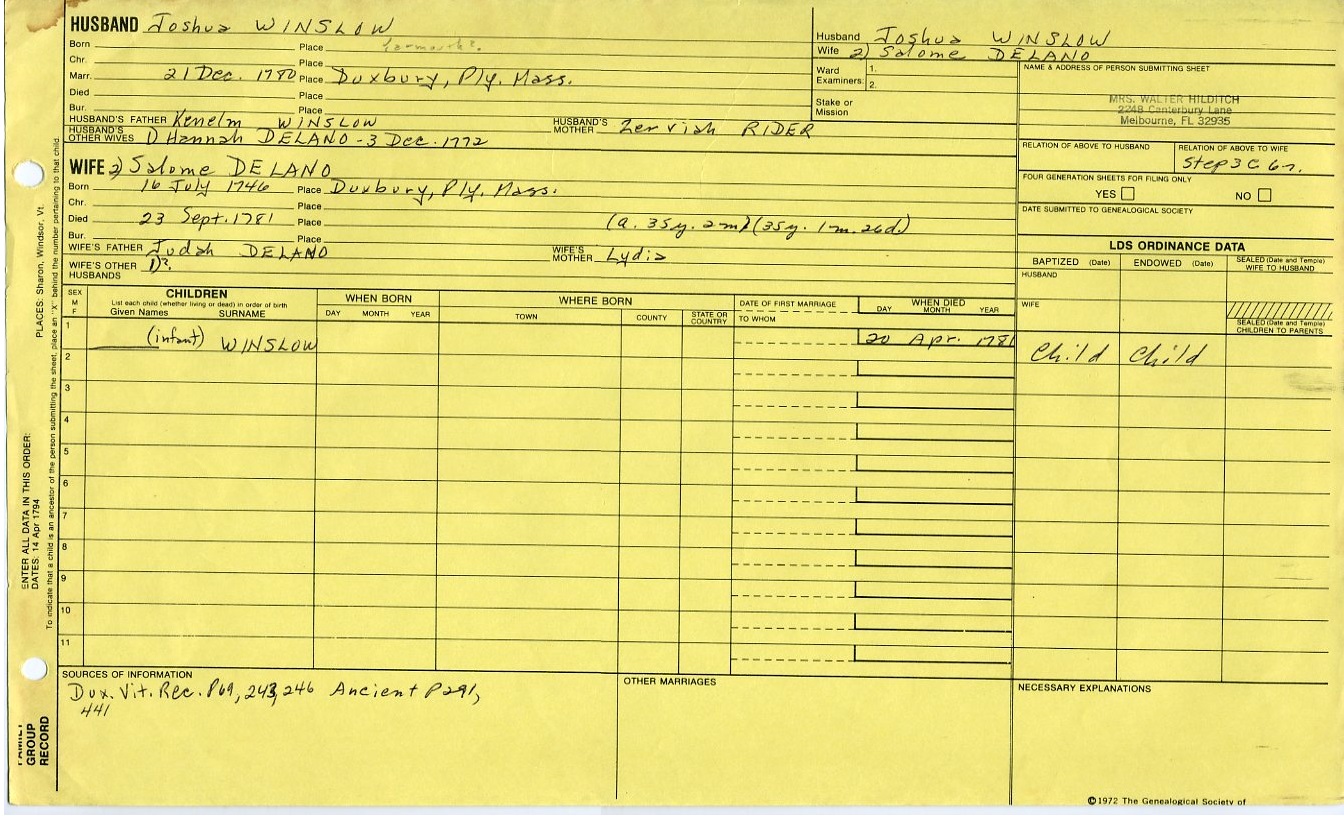 HUSBAND Joshua WINSLOW
Born Place Yarmouth?
Chr. Place
Marr. 21 Dec. 1780 Place Duxbury, Ply. Mass.
Died Place
Bur. Place
HUSBAND'S FATHER Kenelm WINSLOW HUSBAND'S MOTHER Zerviah RIDER
HUSBAND'S OTHER WIVES 1) Hannah DELANO - 3 Dec. 1772
Husband Joshua WINSLOW
Wife 2) Salome DELANO
Ward Examiners: 1.
2.
Stake or Mission
NAME & ADDRESS OF PERSON SUBMITTING SHEET
MRS. WALTER HILDITCH
2248 Canterbury Lane
Melbourne, FL 32935
RELATION OF ABOVE TO HUSBAND RELATION OF ABOVE TO WIFE
Step 3 C 6r.
FOUR GENERATION SHEETS FOR FILING ONLY
YES NO
DATE SUBMITTED TO GENEALOGICAL SOCIETY
WIFE 2) Salome DELANO
Born 16 July 1746 Place Duxbury, Ply. Mass.
Chr. Place
Died 23 Sept. 1781 Place (a. 35y. 2m) (35y. 1m. 26d.)
Bur. Place
WIFE'S FATHER Judah DELANO WIFE'S MOTHER Lydia
WIFE'S OTHER HUSBANDS 1)?
LDS ORDINANCE DATA
BAPTIZED (Date) ENDOWED (Date) SEALED (Date and Temple) WIFE TO HUSBAND
HUSBAND
WIFE
SEALED (Date and Temple) CHILDREN TO PARENTS
SEX M F
CHILDREN
List each child (whether living or dead) in order of birth
Given Names SURNAME
WHEN BORN
DAY MONTH YEAR
WHERE BORN
TOWN COUNTY STATE OR COUNTRY
DATE OF FIRST MARRIAGE
TO WHOM
WHEN DIED
DAY MONTH YEAR
1 (infant) WINSLOW 20 Apr. 1781 Child Child
2
3
4
5
6
7
8
9
10
11
SOURCES OF INFORMATION
Dux. Vit. Rec. P69, 243, 246 Ancient P291,
441
OTHER MARRIAGES
NECESSARY EXPLANATIONS
©1972 The Genealogical Society of
PLACES: Sharon, Windsor, Vt.
To indicate that a child is an ancestor of the person submitting the sheet, place an "X" behind the number pertaining to that child.
ENTER ALL DATA IN THIS ORDER:
DATES: 14 Apr 1794
FAMILY
GROUP
RECORD